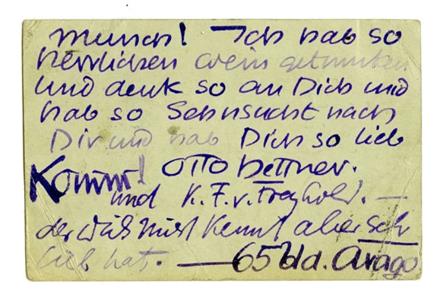 Mensch! Ich hab so
herrlichen Wein getrunken
und denk so an Dich und
hab so Sehnsucht nach
Dir und hab Dich so lieb
Komm! Otto Hettner.
und K. F. v. Freyhold. —
der Dich nicht kennt aber sehr
lieb hat. — 65 bld. Arago